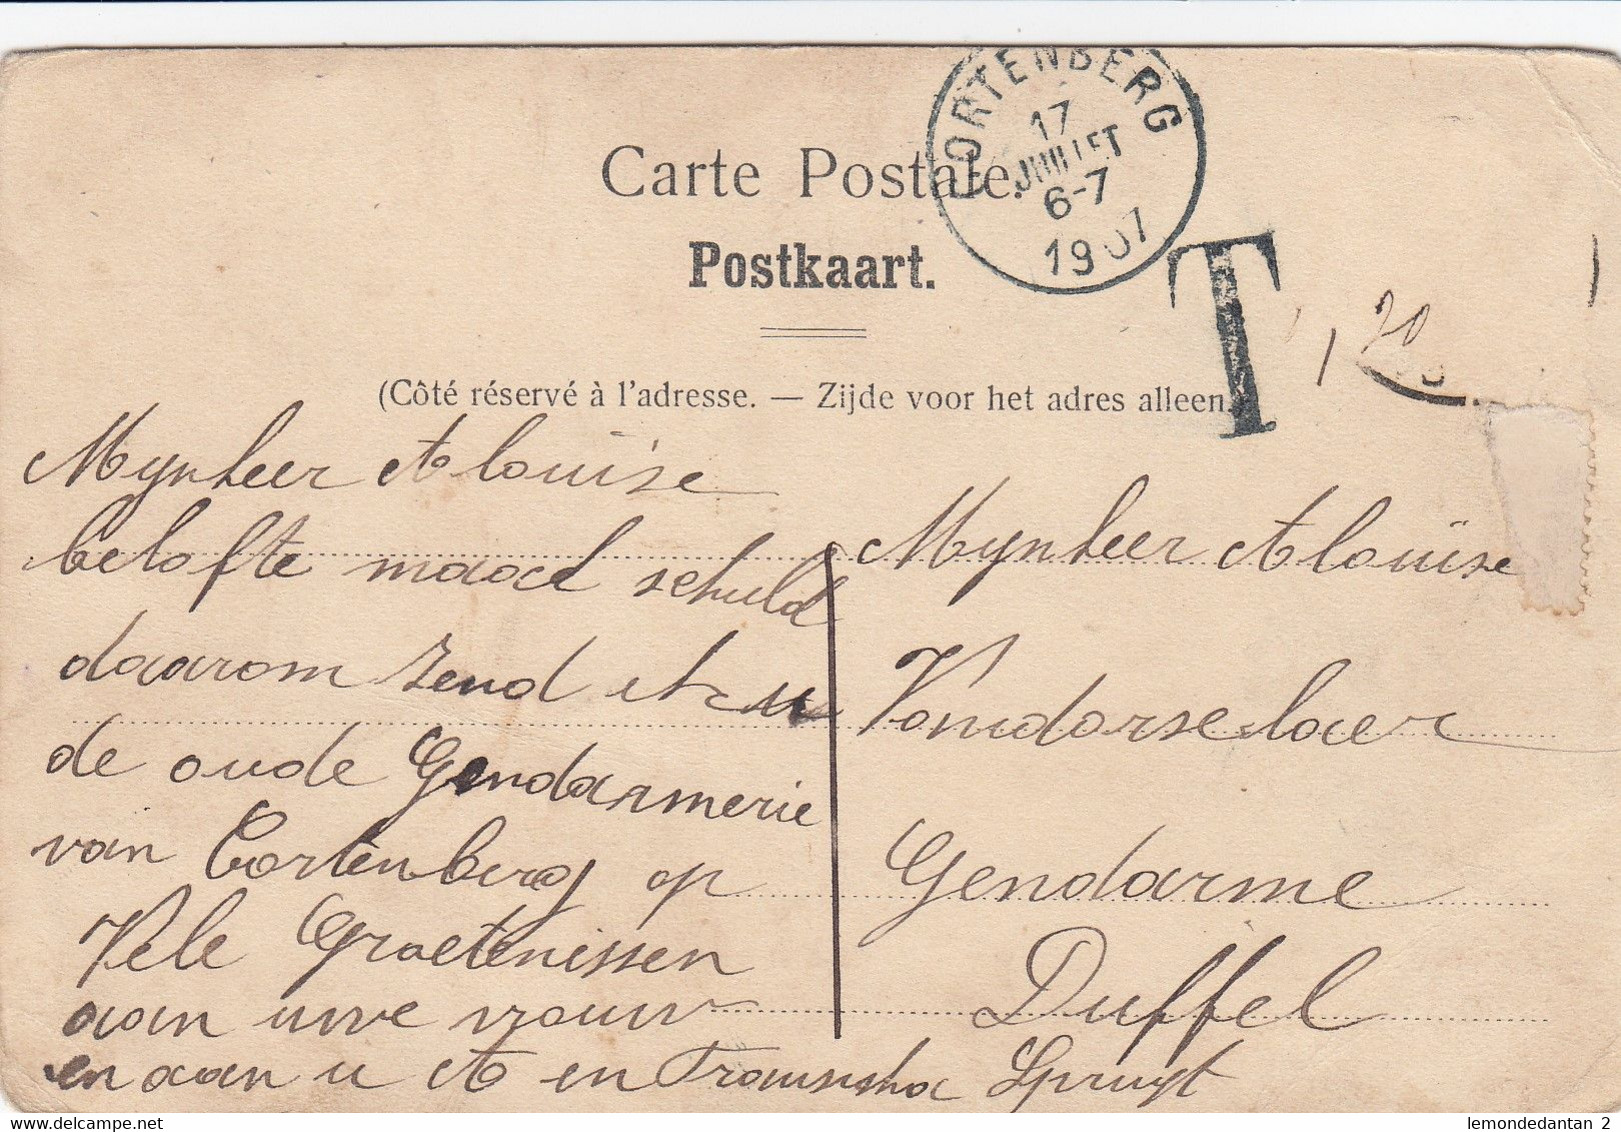 CORTENBERG
17
JUILLET
6-7
1907
Carte Postale.
Postkaart.
T
20
(Côté réservé à l'adresse. — Zijde voor het adres alleen.
Mynheer Alouïse
belofte maact schuld
daarom zend ik u
de oude Gendarmerie
van Cortenberg op
Vele Groetenissen
aan uwe vrouw
en aan u A en Spruyt
Mynheer Alouïse
Vandorselaer
Gendarme
Duffel
lemondedantan 2